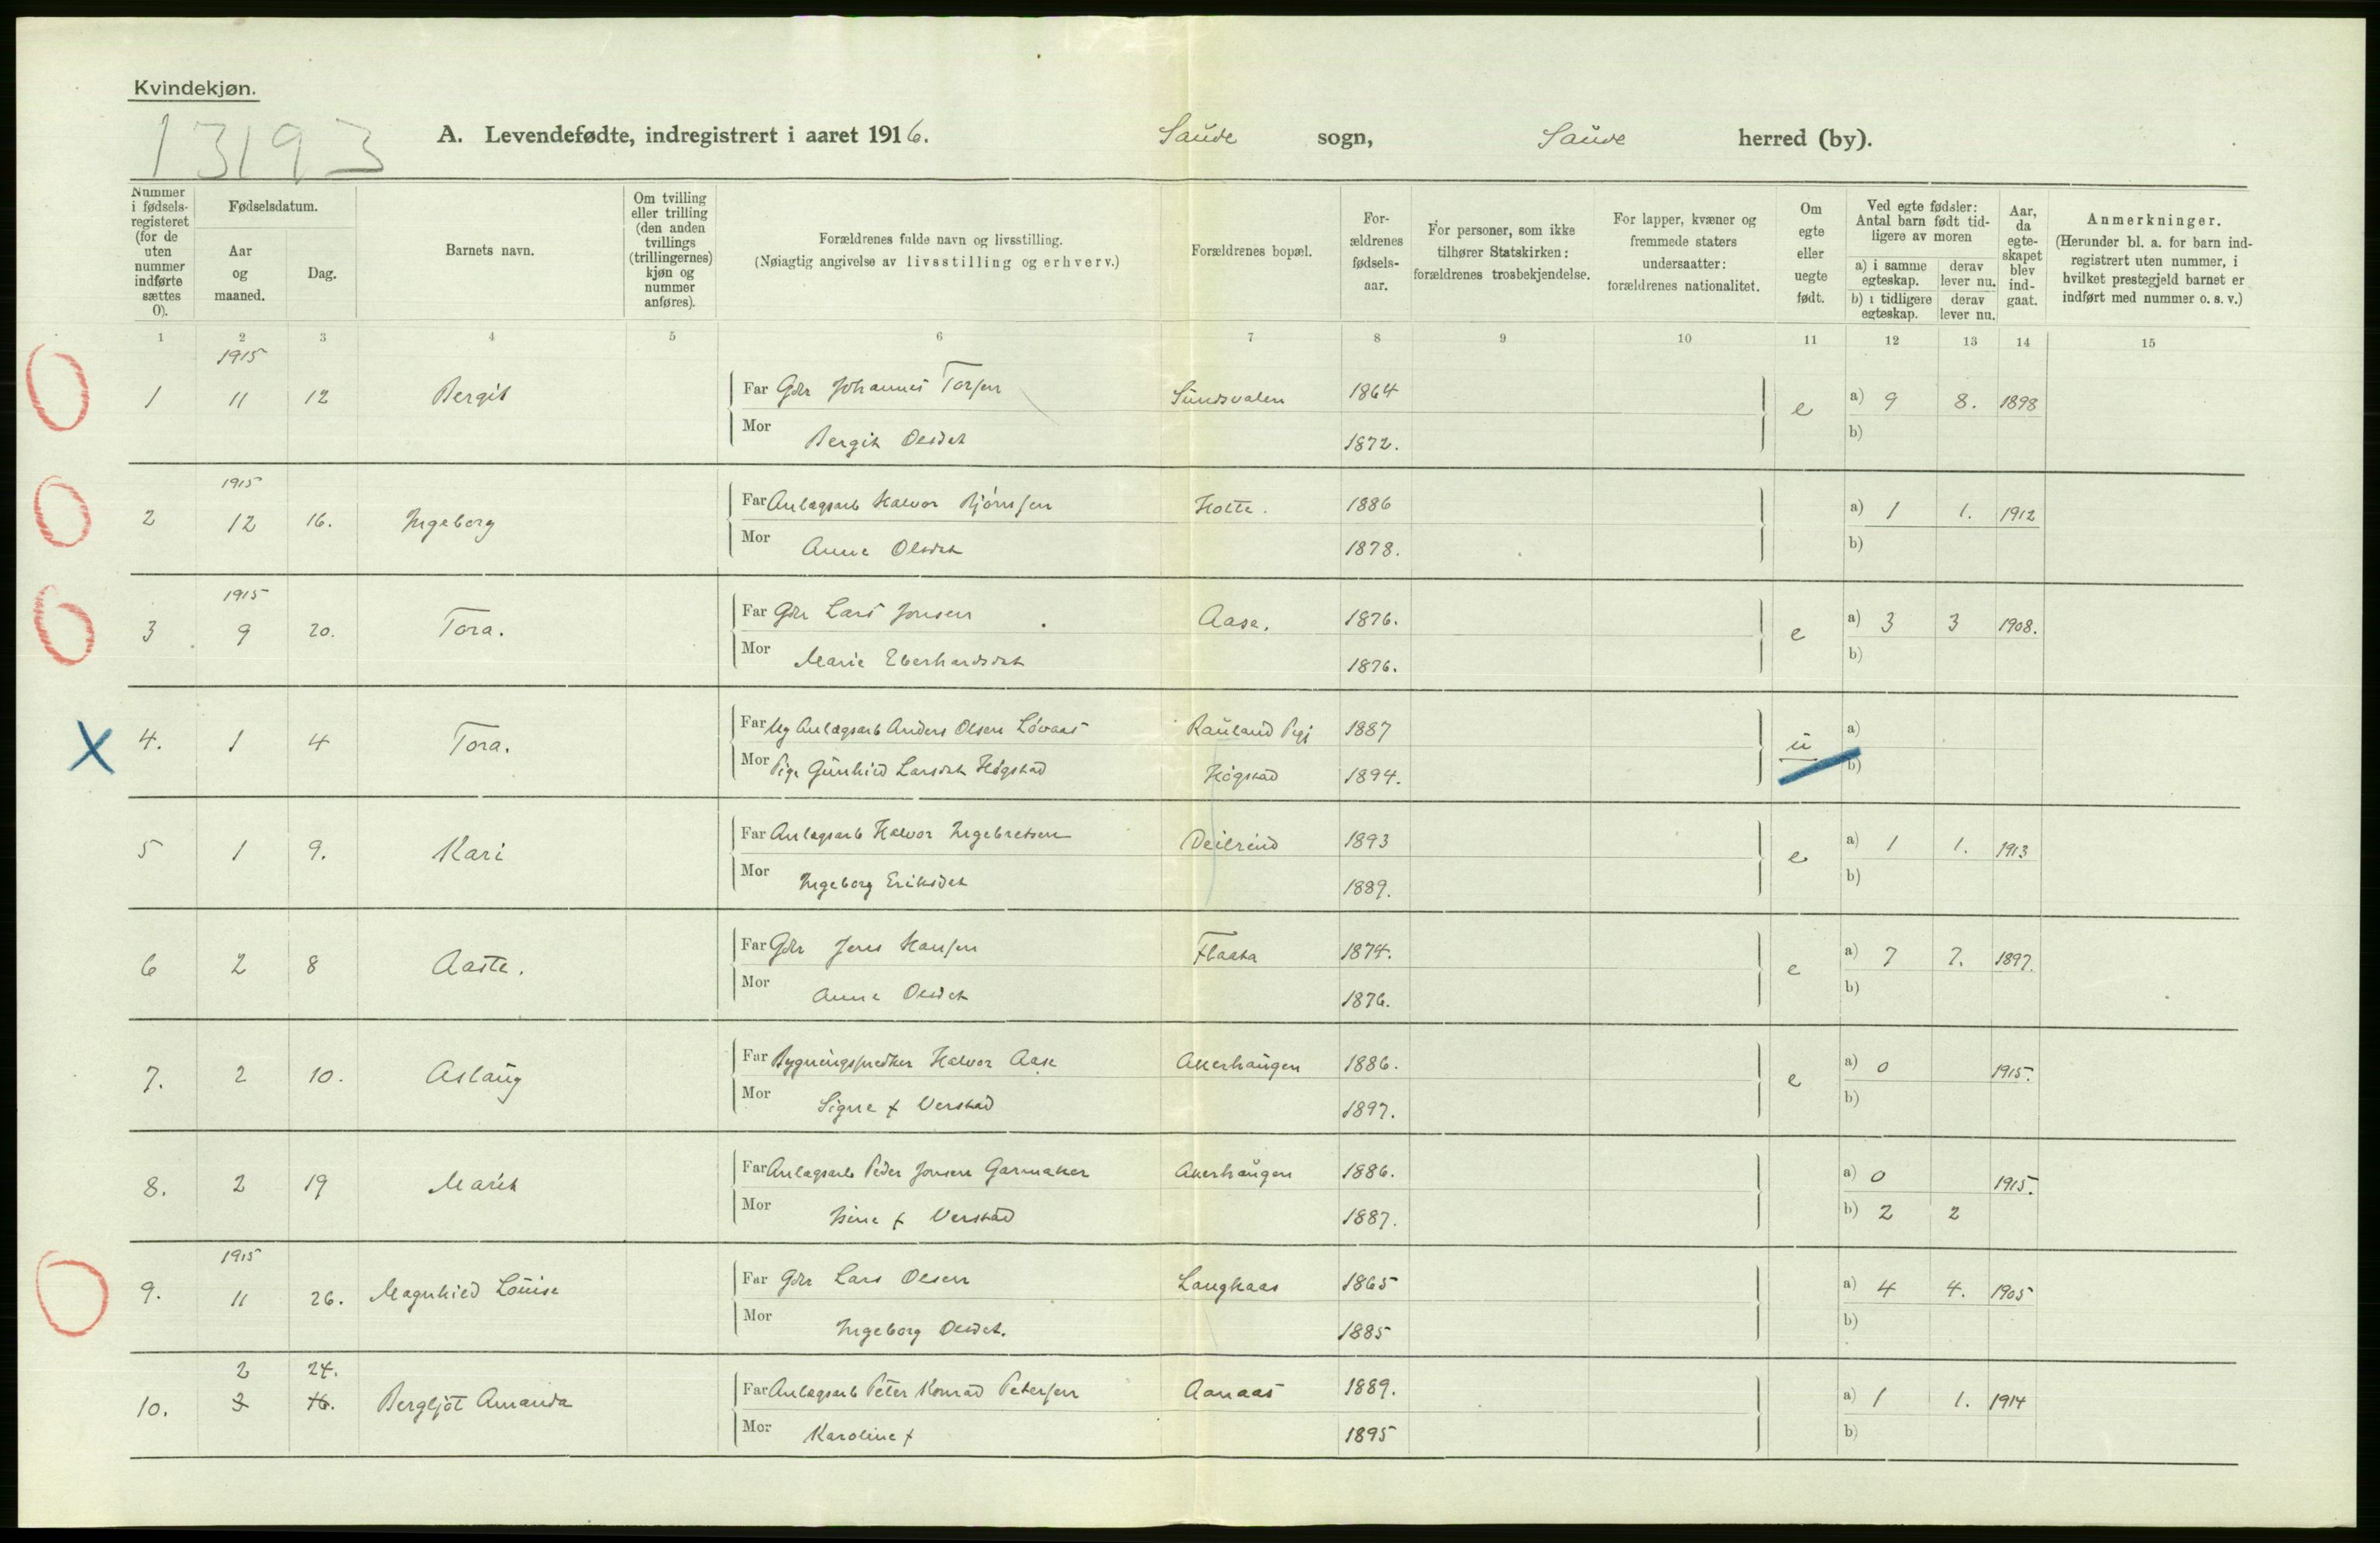 Kvindekjøn.
13193
A. Levendefødte, indregistrert i aaret 1916. Saude sogn, Saude herred (by).
Nummer i fødselsregisteret (for de uten nummer indførte sættes 0).
Fødselsdatum.
Aar og maaned.
Dag.
Barnets navn.
Om tvilling eller trilling (den anden tvillings (trillingernes) kjøn og nummer anføres).
Forældrenes fulde navn og livsstilling.
(Nøiagtig angivelse av livsstilling og erhverv.)
Forældrenes bopæl.
For-ældrenes fødsels-aar.
For personer, som ikke tilhører Statskirken: forældrenes trosbekjendelse.
For lapper, kvæner og fremmede staters undersaatter: forældrenes nationalitet.
Om egte eller uegte født.
Ved egte fødsler: Antal barn født tidligere av moren
a) i samme egteskap. derav lever nu.
b) i tidligere egteskap. derav lever nu.
Aar, da egte-skapet blev ind-gaat.
Anmerkninger.
(Herunder bl. a. for barn ind-registrert uten nummer, i hvilket prestegjeld barnet er indført med nummer o. s. v.)
1 2 3 4 5 6 7 8 9 10 11 12 13 14 15
1915
1 11 12 Bergit Far Gbr Johannes Torsen Sundsvalen 1864 e a) 9 8. 1898
Mor Bergit Olsdat 1872. b)
1915
2 12 16. Ingeborg Far Anlægsarb Halvor Bjørnsen Holte. 1886 a) 1 1. 1912
Mor Anne Olsdat 1878. b)
1915
3 9 20. Tora. Far Gbr Lars Jonsen Aase. 1876. e a) 3 3 1908.
Mor Marie Eberhardsdat 1876. b)
4. 1 4 Tora. Far Ug Anlægsarb Anders Olsen Løvaas Rauland Pgj 1887 u a)
Mor Pige Gunhild Larsdat Høgstad Høgstad 1894. b)
5 1 9. Kari Far Anlægsarb Halvor Ingebretsen Deilrind 1893 e a) 1 1. 1913
Mor Ingeborg Eriksdat 1889. b)
6 2 8 Aaste. Far Gbr Jens Hansen Flaata 1874. e a) 7 7. 1897.
Mor Anne Olsdat 1876. b)
7. 2 10. Aslaug Far Bygningssnedker Halvor Aase Akerhaugen 1886. e a) 0 1915.
Mor Signe f Verstad 1897. b)
8. 2 19 Marit Far Anlægsarb Peder Jonsen Garmaker Akerhaugen 1886. a) 0 1915.
Mor f Verstad 1887. b) 2 2
1915
9. 11 26. Magnhild Louise Far Gbr Lars Olsen Langkaas 1865 a) 4 4. 1905
Mor Ingeborg Olsdat. 1885 b)
2 24.
10. 3 16. Bergljot Amanda Far Anlægsarb Peter Konrad Petersen Aanaas 1889. a) 1 1. 1914
Mor Karoline f 1895 b)